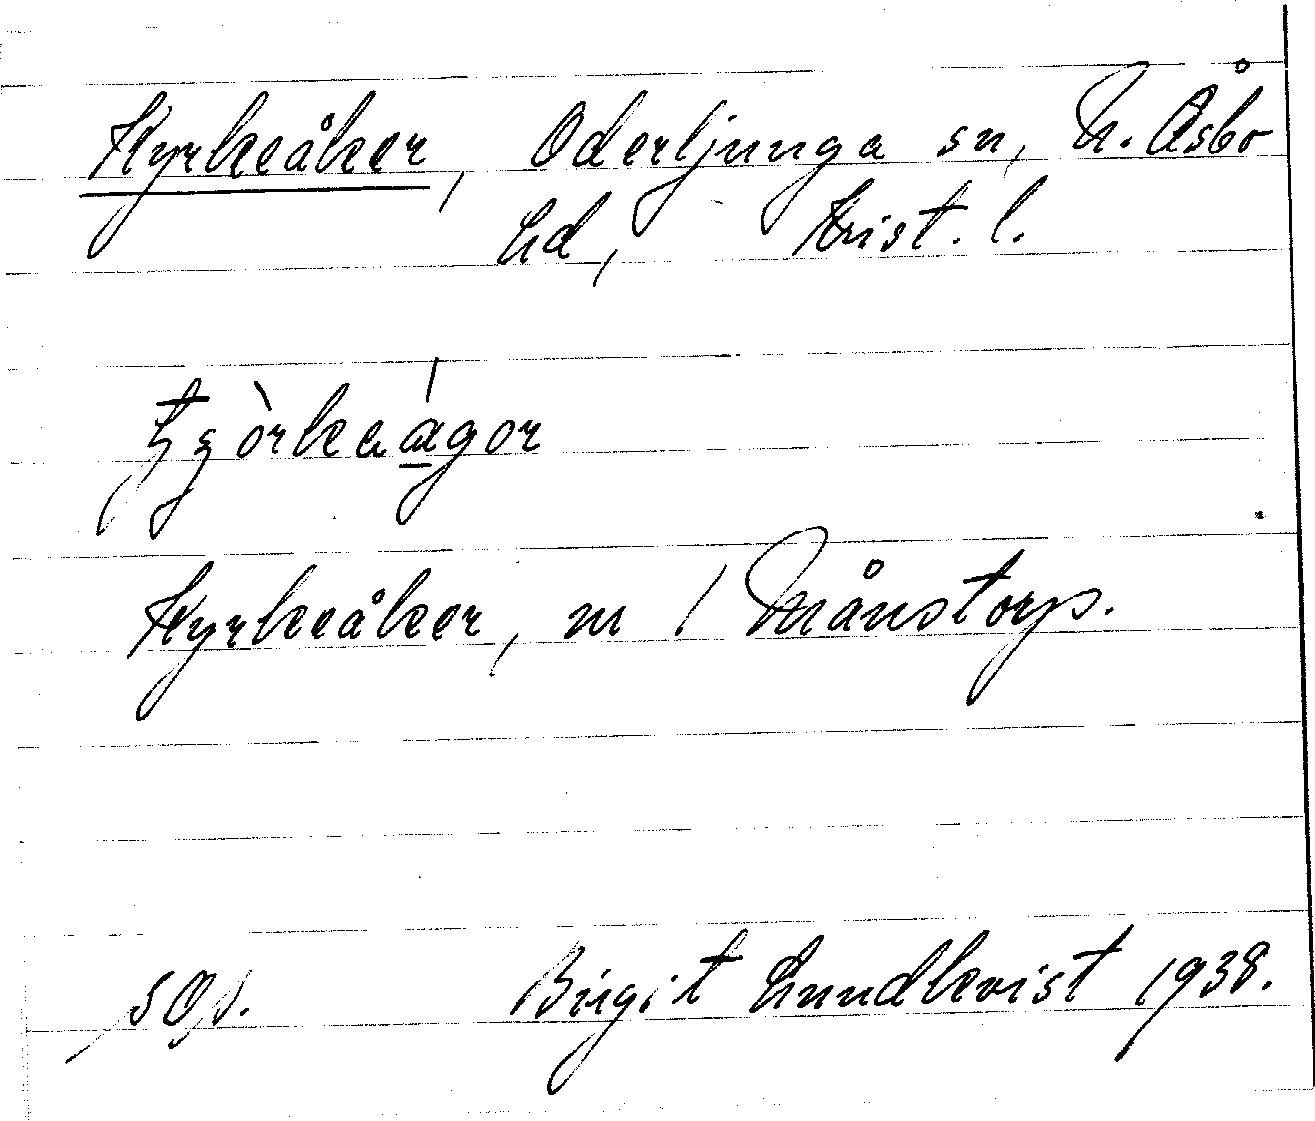 Kyrkeåker, Oderljunga sn, N. Åsbo
hd, Krist. l.
Kyrkeåker, m / Månstorp.
Birgit Lundkvist 1938.